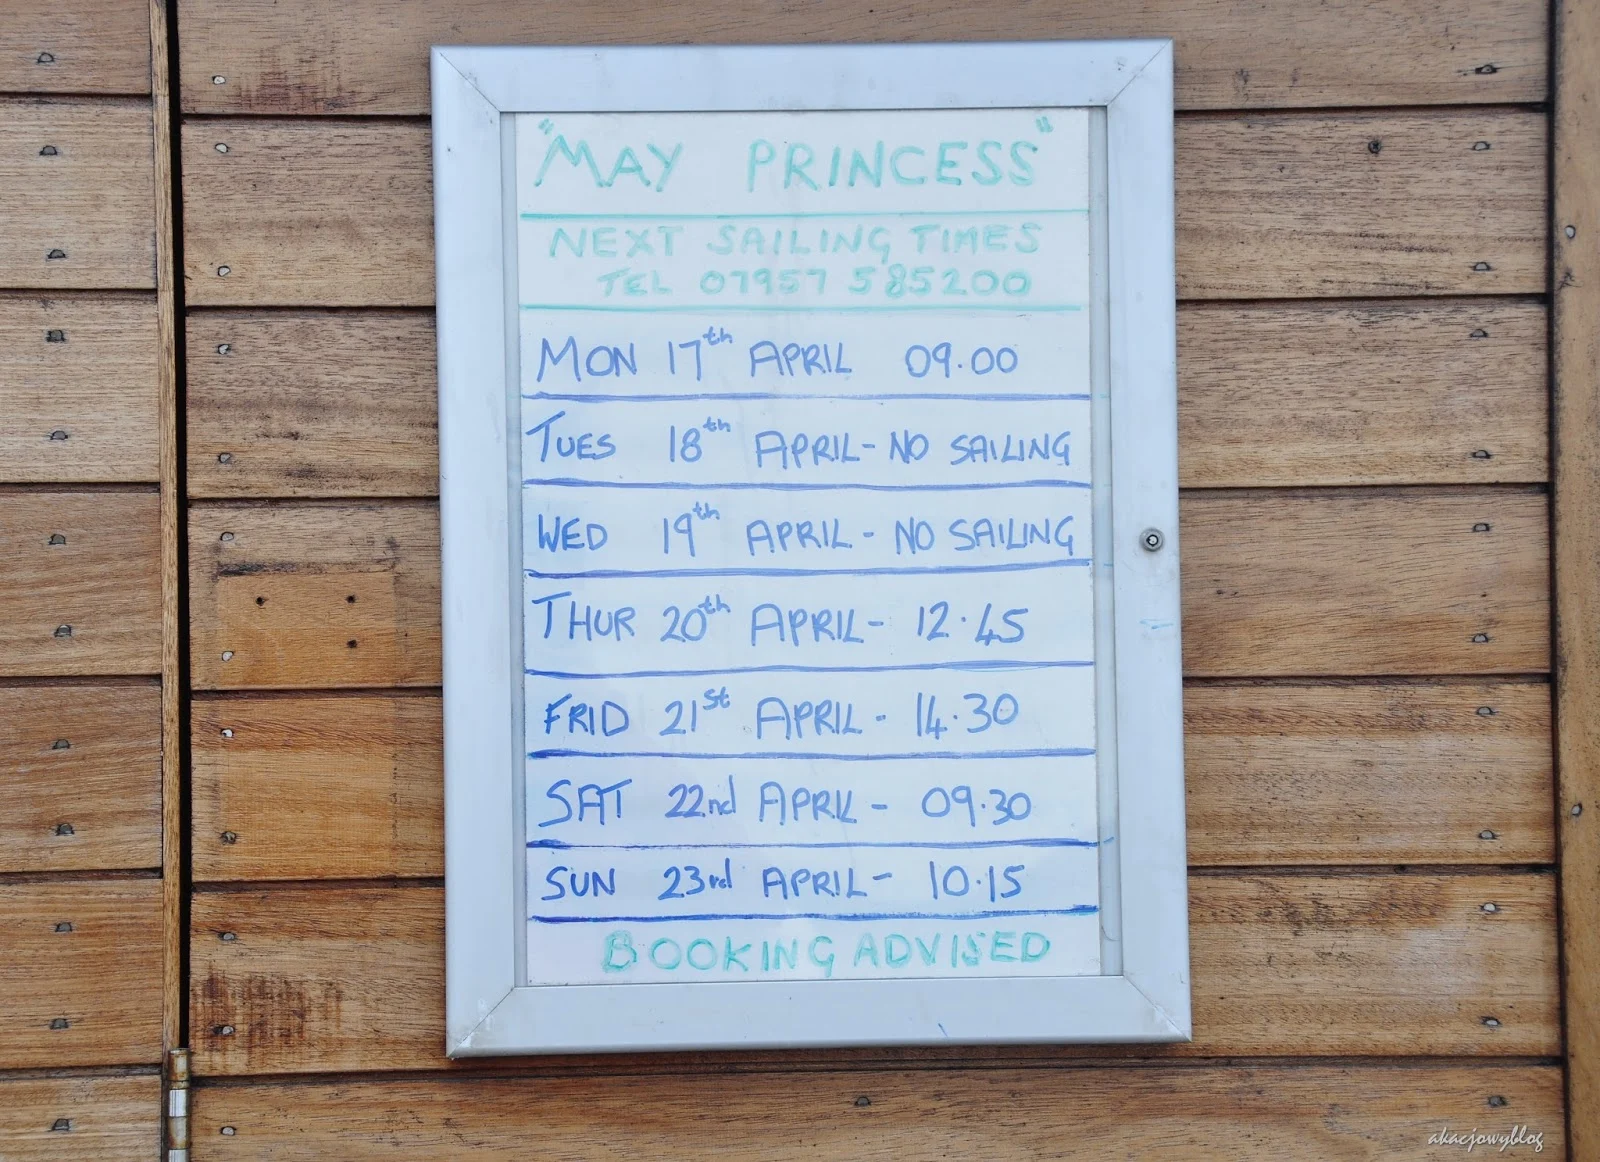 "MAY PRINCESS"
NEXT SAILING TIMES
TEL 07957 585200
MON 17th APRIL 09.00
TUES 18th APRIL - NO SAILING
WED 19th APRIL - NO SAILING
THUR 20th APRIL - 12.45
FRID 21st APRIL - 14.30
SAT 22nd APRIL - 09.30
SUN 23rd APRIL - 10.15
BOOKING ADVISED
akacjowyblog